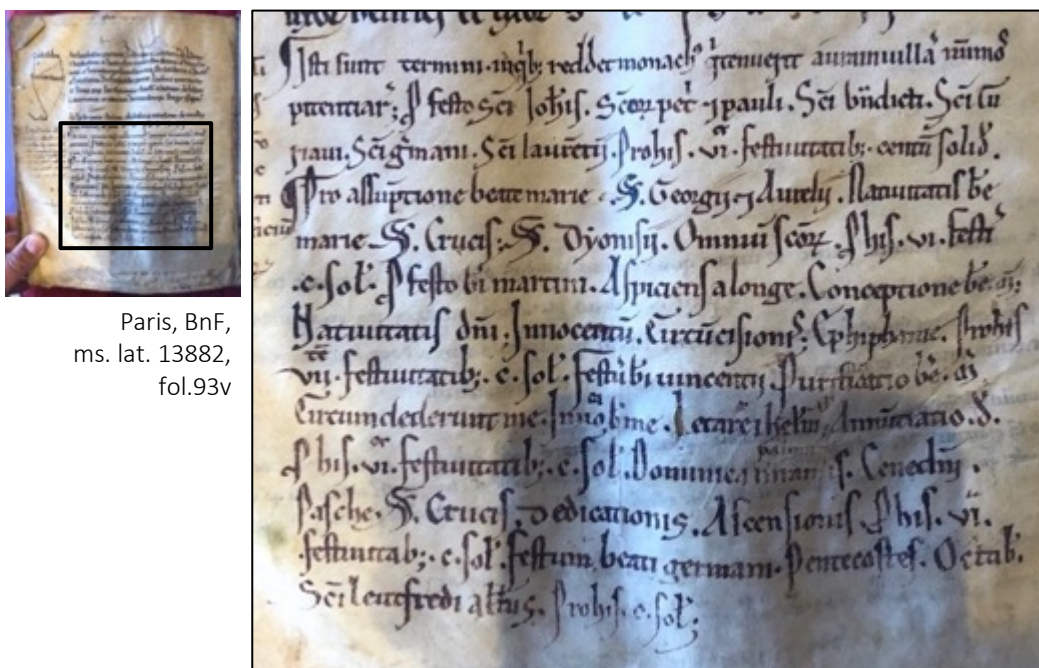 Paris, BnF,
ms. lat. 13882,
fol.93v
Isti sunt termini. in qb; reddet monachꝰ
pitentiar̄; P festo Sc̄i Joh̄is. Sc̄oꝝ pet᷑ ⁊ pauli. Sc̄i bn̄dicti. Sc̄i
Sc̄i g̃mani. Sc̄i laurētii. Prohis. vi. festiuitatib;. centū solid̛.
Pro assūptione beate marie. S. Georgij ⁊ Aurelij. Natiuitatis be
marie. S. Crucis; S. Dyonisij. Omniū sc̄oꝝ. P his. vi. festi
.c. sol̛. P festo bi martini. Aspiciens a longe. Conceptione be. m̄;
Natiuitatis dn̄i. Innocentū. Circūcisionis. Ephiphanie. Prohis
vii. festiuitatib;. c. sol̛. Festū bi uincentij. Purificatio be. m̄
Circumdederunt me. Letare ihrlm̄. Annūtiatio. d̄.
P his. vi. festiuitatib;. c. sol̛. Dominica palmarū. Cene dn̄i.
Pasche. S. Crucis. Dedicationis. Ascensionis P his. vi.
festiuitab;. c. sol̛. festum beati germani. Pentecostes. Octab̛.
Sc̄i leutfredi alt̄ius. Prohis. c. sol̛;